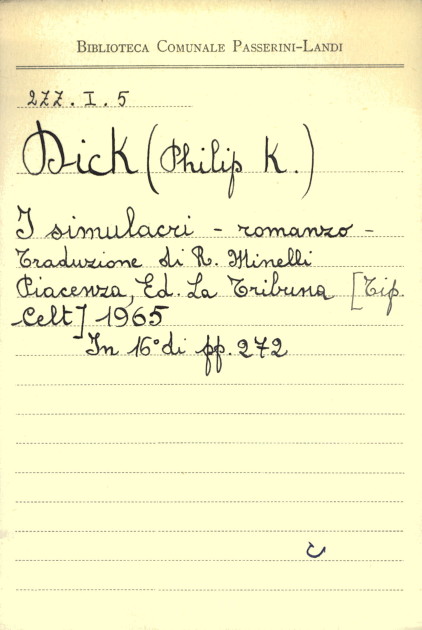 BIBLIOTECA COMUNALE PASSERINI-LANDI
277. I. 5
Dick (Philip K.)
I simulacri - romanzo -
Traduzione di R. Minelli
Piacenza, Ed. La Tribuna [Tip.
Celt] 1965
In 16° di pp. 272
C